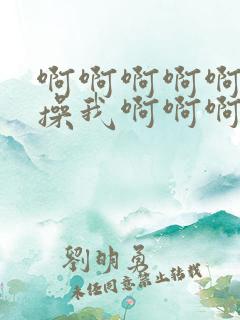 啊啊啊啊啊
操我啊啊啊
劉明勇
未经同意禁止转载